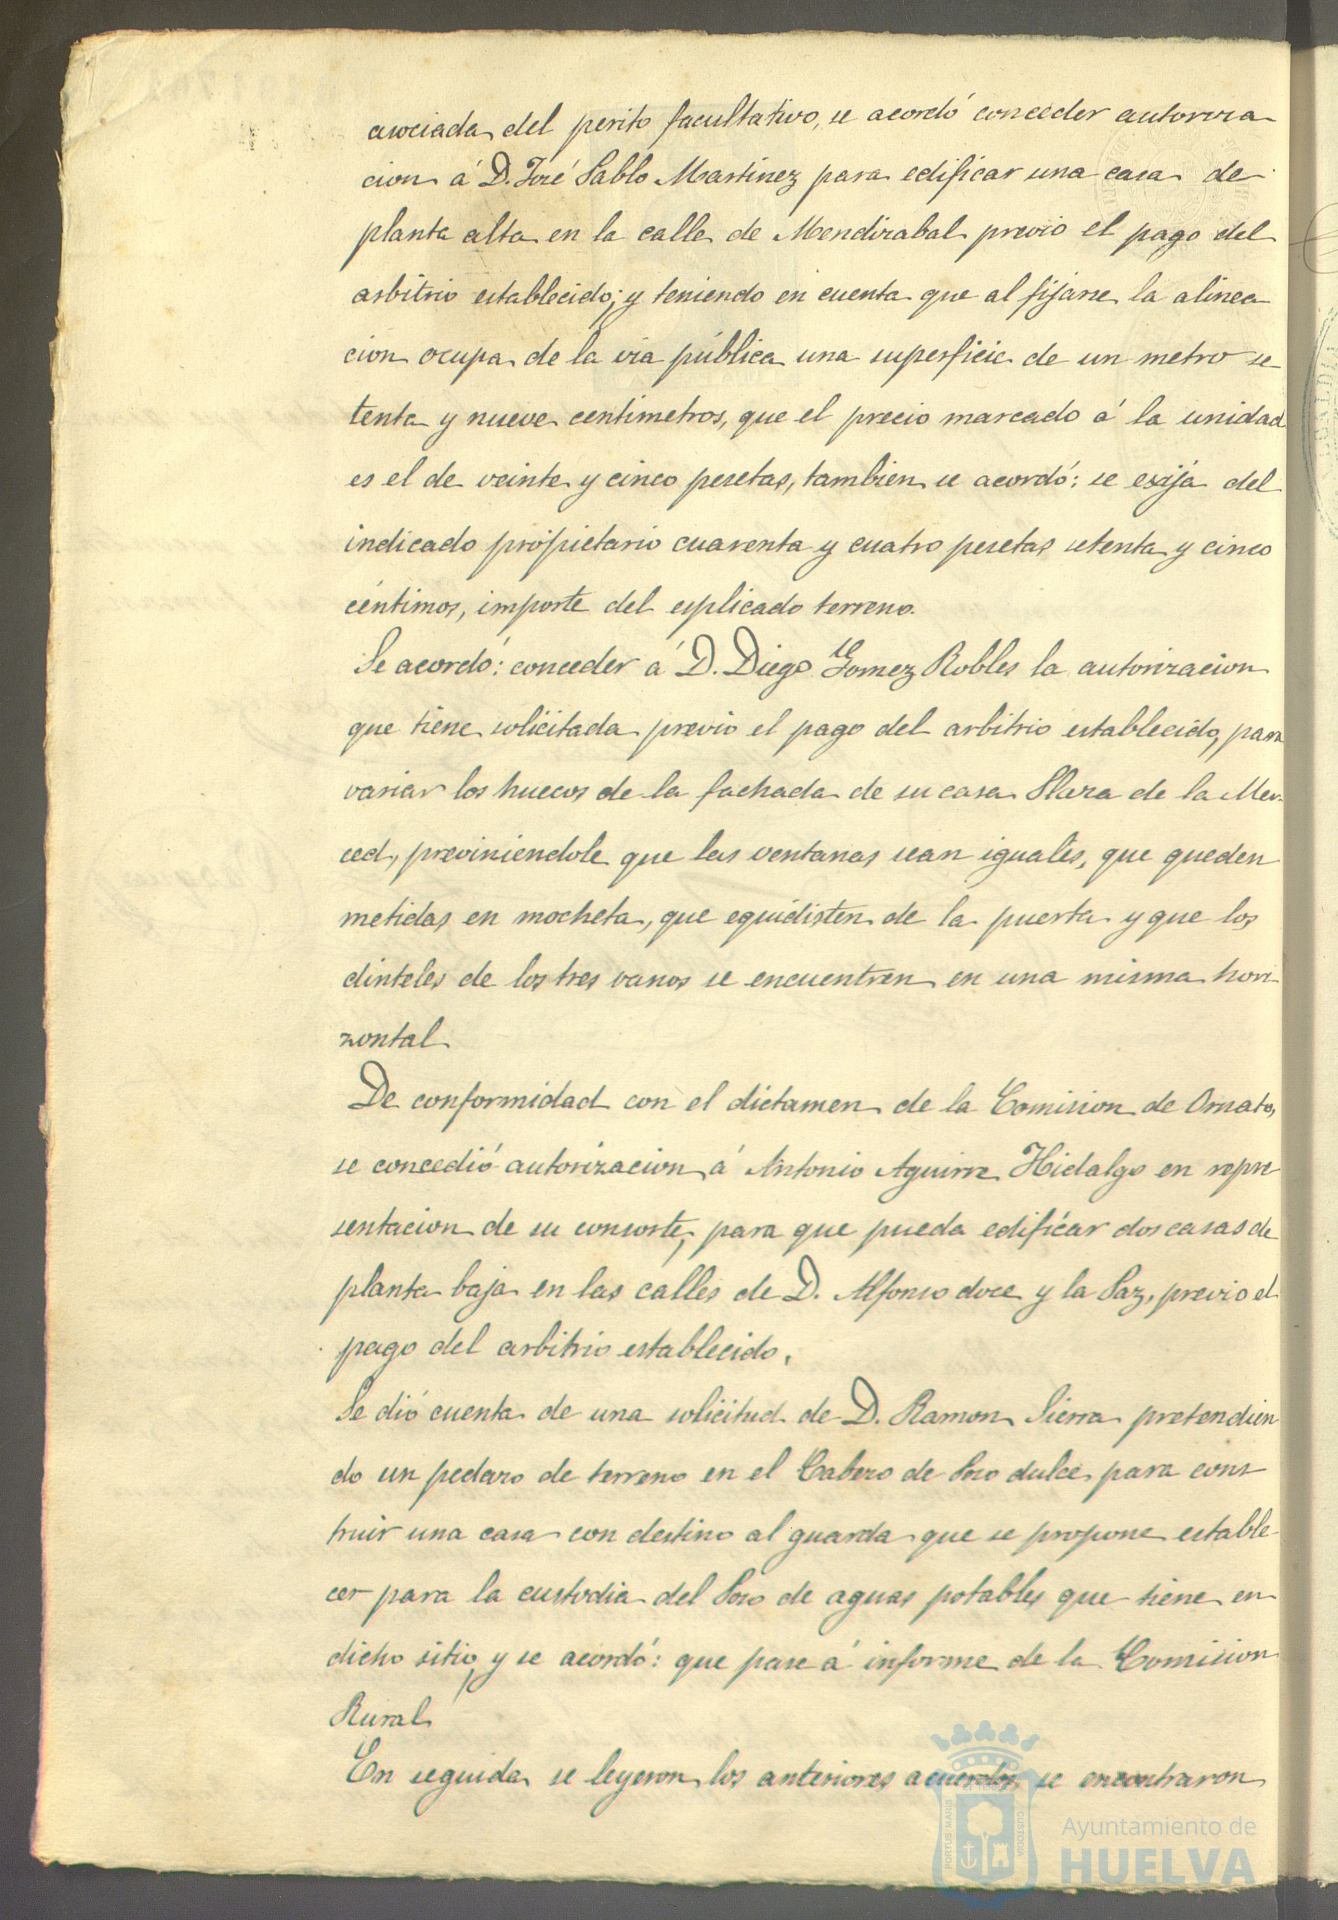 asociada del perito facultativo, se acordó conceder autoriza
cion á D. José Pablo Martinez para edificar una casa de
planta alta en la calle de Mendizabal previo el pago del
arbitrio establecido; y teniendo en cuenta que al fijarse la alinea
cion ocupa de la via pública una superficie de un metro se
tenta y nueve centimetros, que el precio marcado á la unidad
es el de veinte y cinco pesetas, tambien se acordó: se exija del
indicado propietario cuarenta y cuatro pesetas setenta y cinco
céntimos, importe del esplicado terreno.
Se acordó: conceder á D. Diego Gomez Robles la autorizacion
que tiene solicitada previo el pago del arbitrio establecido, para
variar los huecos de la fachada de su casa Plaza de la Mer-
ced, previniendole que las ventanas sean iguales, que queden
metidas en mocheta, que equidisten de la puerta y que los
dinteles de los tres vanos se encuentren en una misma hori
zontal
De conformidad con el dictamen de la Comision de Ornato,
se concedió autorizacion á Antonio Aguirre Hidalgo en repre
sentacion de su consorte, para que pueda edificar dos casas de
planta baja en las calles de D. Alfonso doce y la Paz, previo el
pago del arbitrio establecido.
Se dió cuenta de una solicitud de D. Ramon Sierra pretendien
do un pedazo de terreno en el Cabezo de Pozo dulce para cons
truir una casa con destino al guarda que se propone estable-
cer para la custodia del Pozo de aguas potables que tiene en
dicho sitio, y se acordó: que pase á informe de la Comision
Rural
En seguida se leyeron los anteriores acuerdos, se encontraron
PORTUS MARIS
CUSTODIA
Ayuntamiento de
HUELVA